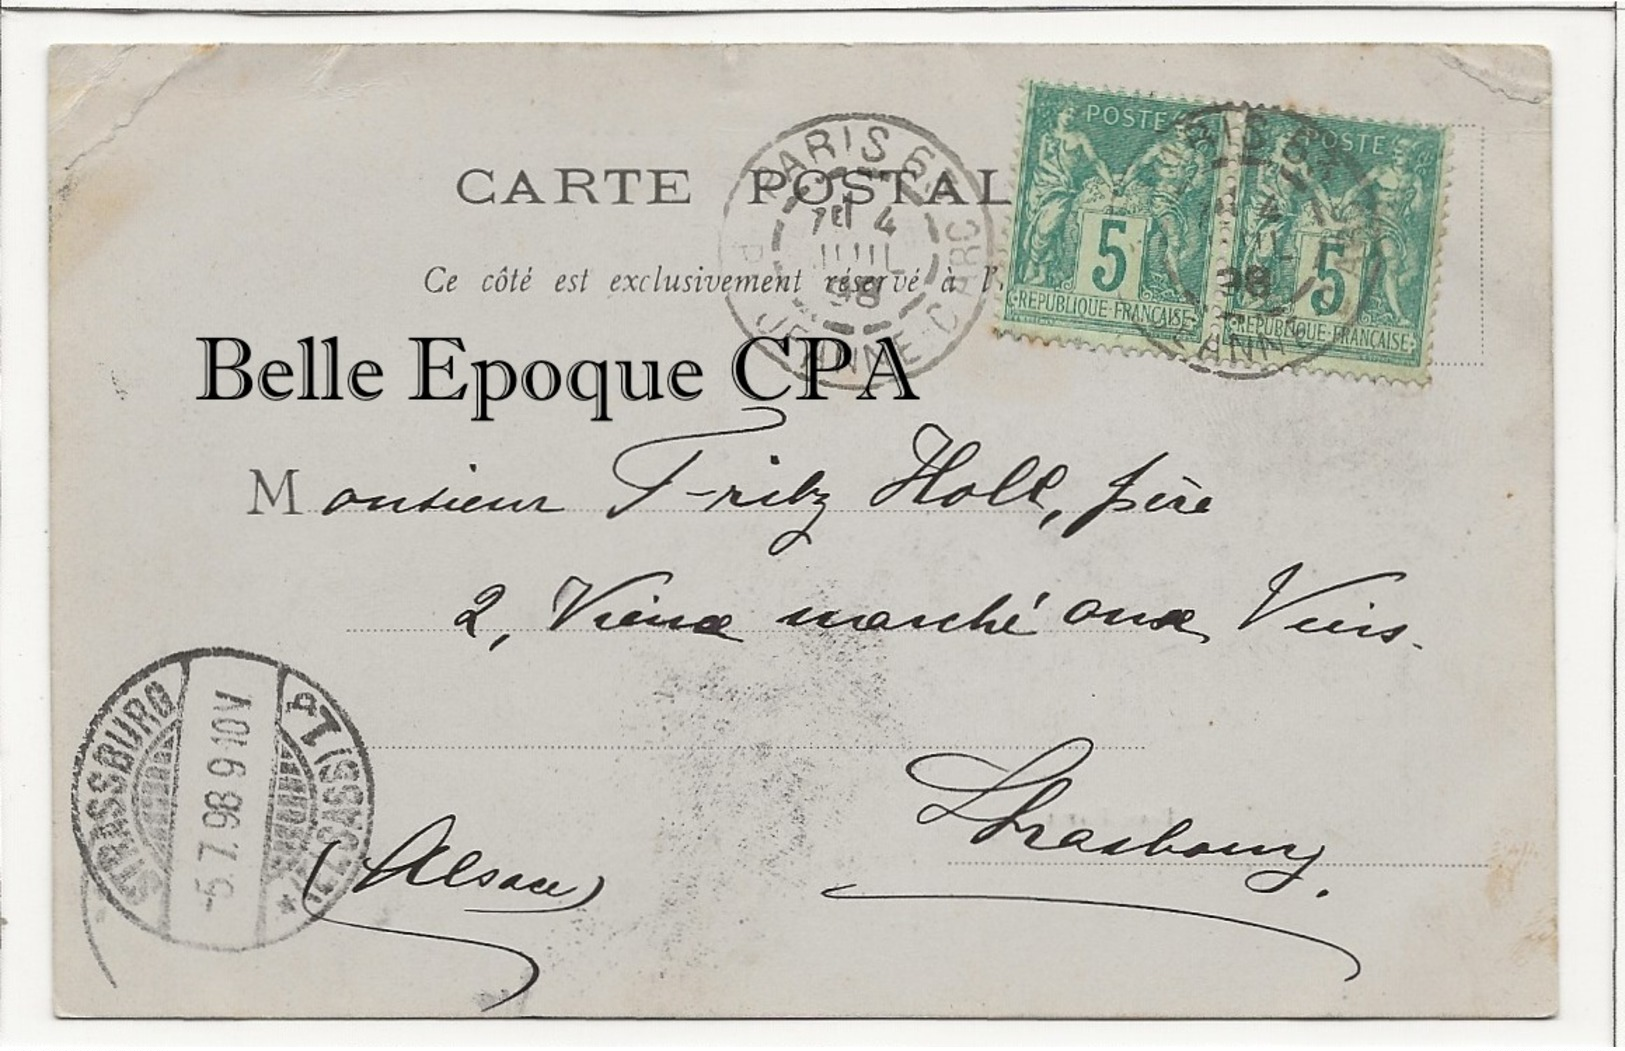 CARTE POSTAL
Ce côté est exclusivement réservé à l'
PARIS 6
7E 4
JUIL
98
JEANNE-D'ARC
POSTE
5
REPUBLIQUE FRANÇAISE
POSTE
5
REPUBLIQUE FRANÇAISE
98
Belle Epoque CPA
Monsieur Fritz Holl, père
2, Vieux marché aux Vins.
Strasbourg.
(Alsace)
STRASSBURG
5.7.98 9-10V
(ELSASS) 1